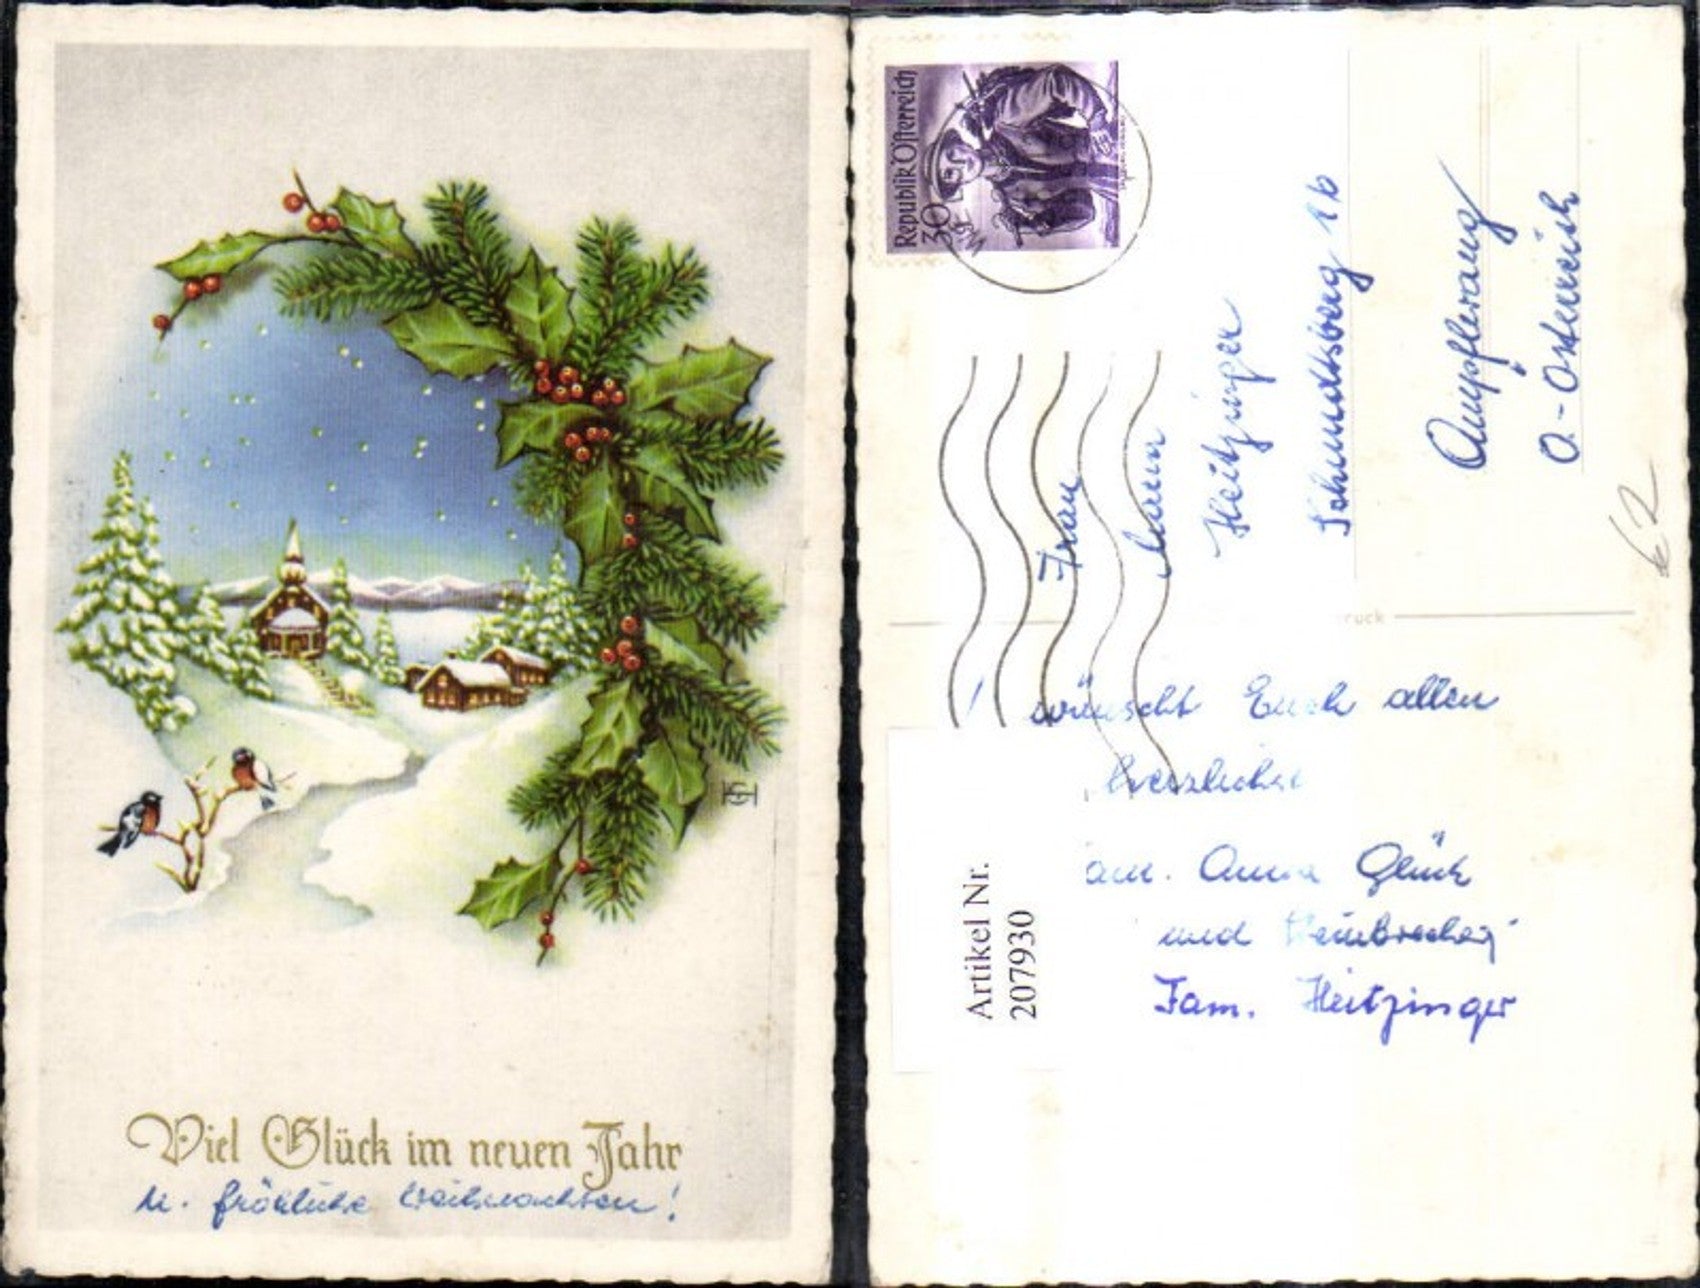 Viel Glück im neuen Jahr
u. fröhliche Weihnachten!
HG
Republik Österreich
30
Frau
Heitzinger
Schmidtsberg 16
Ampflwang
O.-Österreich
62
ruck
wünscht Euch allen
herzlichst
Anna Glück
und
Fam. Heitzinger
Artikel Nr.
207930